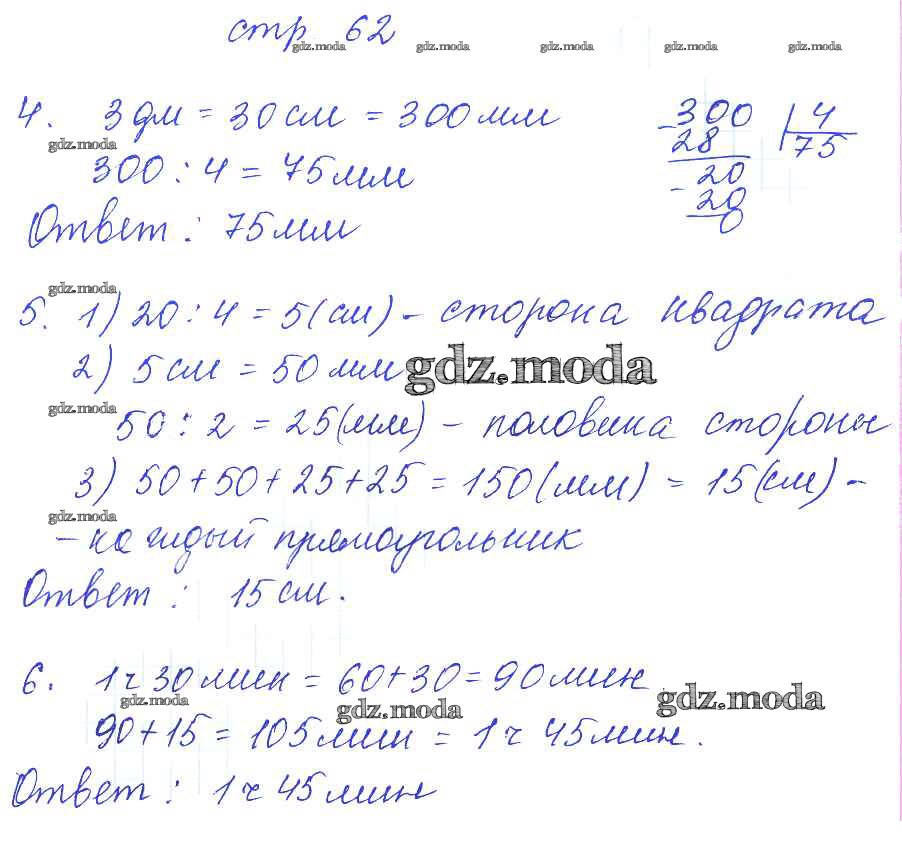 стр 62
gdz.moda gdz.moda gdz.moda gdz.moda gdz.moda
4. 3 дм = 30 см = 300 мм
gdz.moda
300 : 4 = 75 мм
Ответ : 75 мм
-300 | 4
28 75
-20
20
0
gdz.moda
5. 1) 20 : 4 = 5 (см) - сторона квадрата
2) 5 см = 50 мм
gdz.moda
gdz.moda
50 : 2 = 25 (мм) - половина стороны
3) 50 + 50 + 25 + 25 = 150 (мм) = 15 (см) -
gdz.moda
- каждый прямоугольник
Ответ : 15 см.
6. 1 ч 30 мин = 60 + 30 = 90 мин
gdz.moda gdz.moda gdz.moda
90 + 15 = 105 мин = 1 ч 45 мин.
Ответ : 1 ч 45 мин